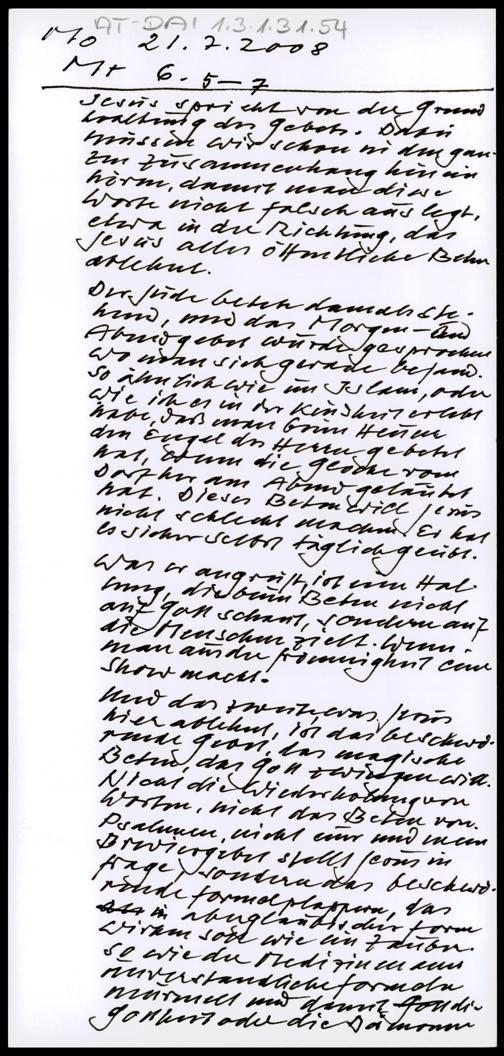 AT-DAI 1.3.1.31.54
Mo 21.7.2008
Mt 6.5-7
Jesus spricht von der Grund
haltung des Gebets. Dazu
müssen wir schon in den gan-
zen Zusammenhang hinein
hören, damit man diese
Worte nicht falsch auslegt,
etwa in der Richtung, das
Jesus alles öffentliche Beten
ablehnt.
Der Jude betete damals ste-
hend, und das Morgen- und
Abendgebet wurde gesprochen
wo man sich gerade befand.
So ähnlich wie im Islam, oder
wie ich es in der Kindheit erlebt
habe, daß man beim Heuen
den Engel des Herrn gebetet
hat, wenn die Glocke vom
Dorf her am Abend geläutet
hat. Dieses Beten will Jesus
nicht schlecht machen. Er hat
es sicher selbst täglich geübt.
Was er angreift, ist eine Hal-
tung, die beim Beten nicht
auf Gott schaut, sondern auf
die Menschen zielt. Wenn
man aus der Frömmigkeit eine
Show macht.
Und das zweite, was Jesus
hier ablehnt, ist das beschwö-
rende, das magische
Beten, das Gott zwingen will.
Nicht die Wiederholung von
Worten, nicht das Beten von
Psalmen, nicht euer und mein
Breviergebet stellt Jesus in
Frage, sondern das beschwö-
rende Formelplappern, das
in abergläubischer Form
wirken soll wie ein Zauber.
So wie die Medizinmann
unverständliche Formeln
murmelt und damit die
Gottheit oder die Dämonen